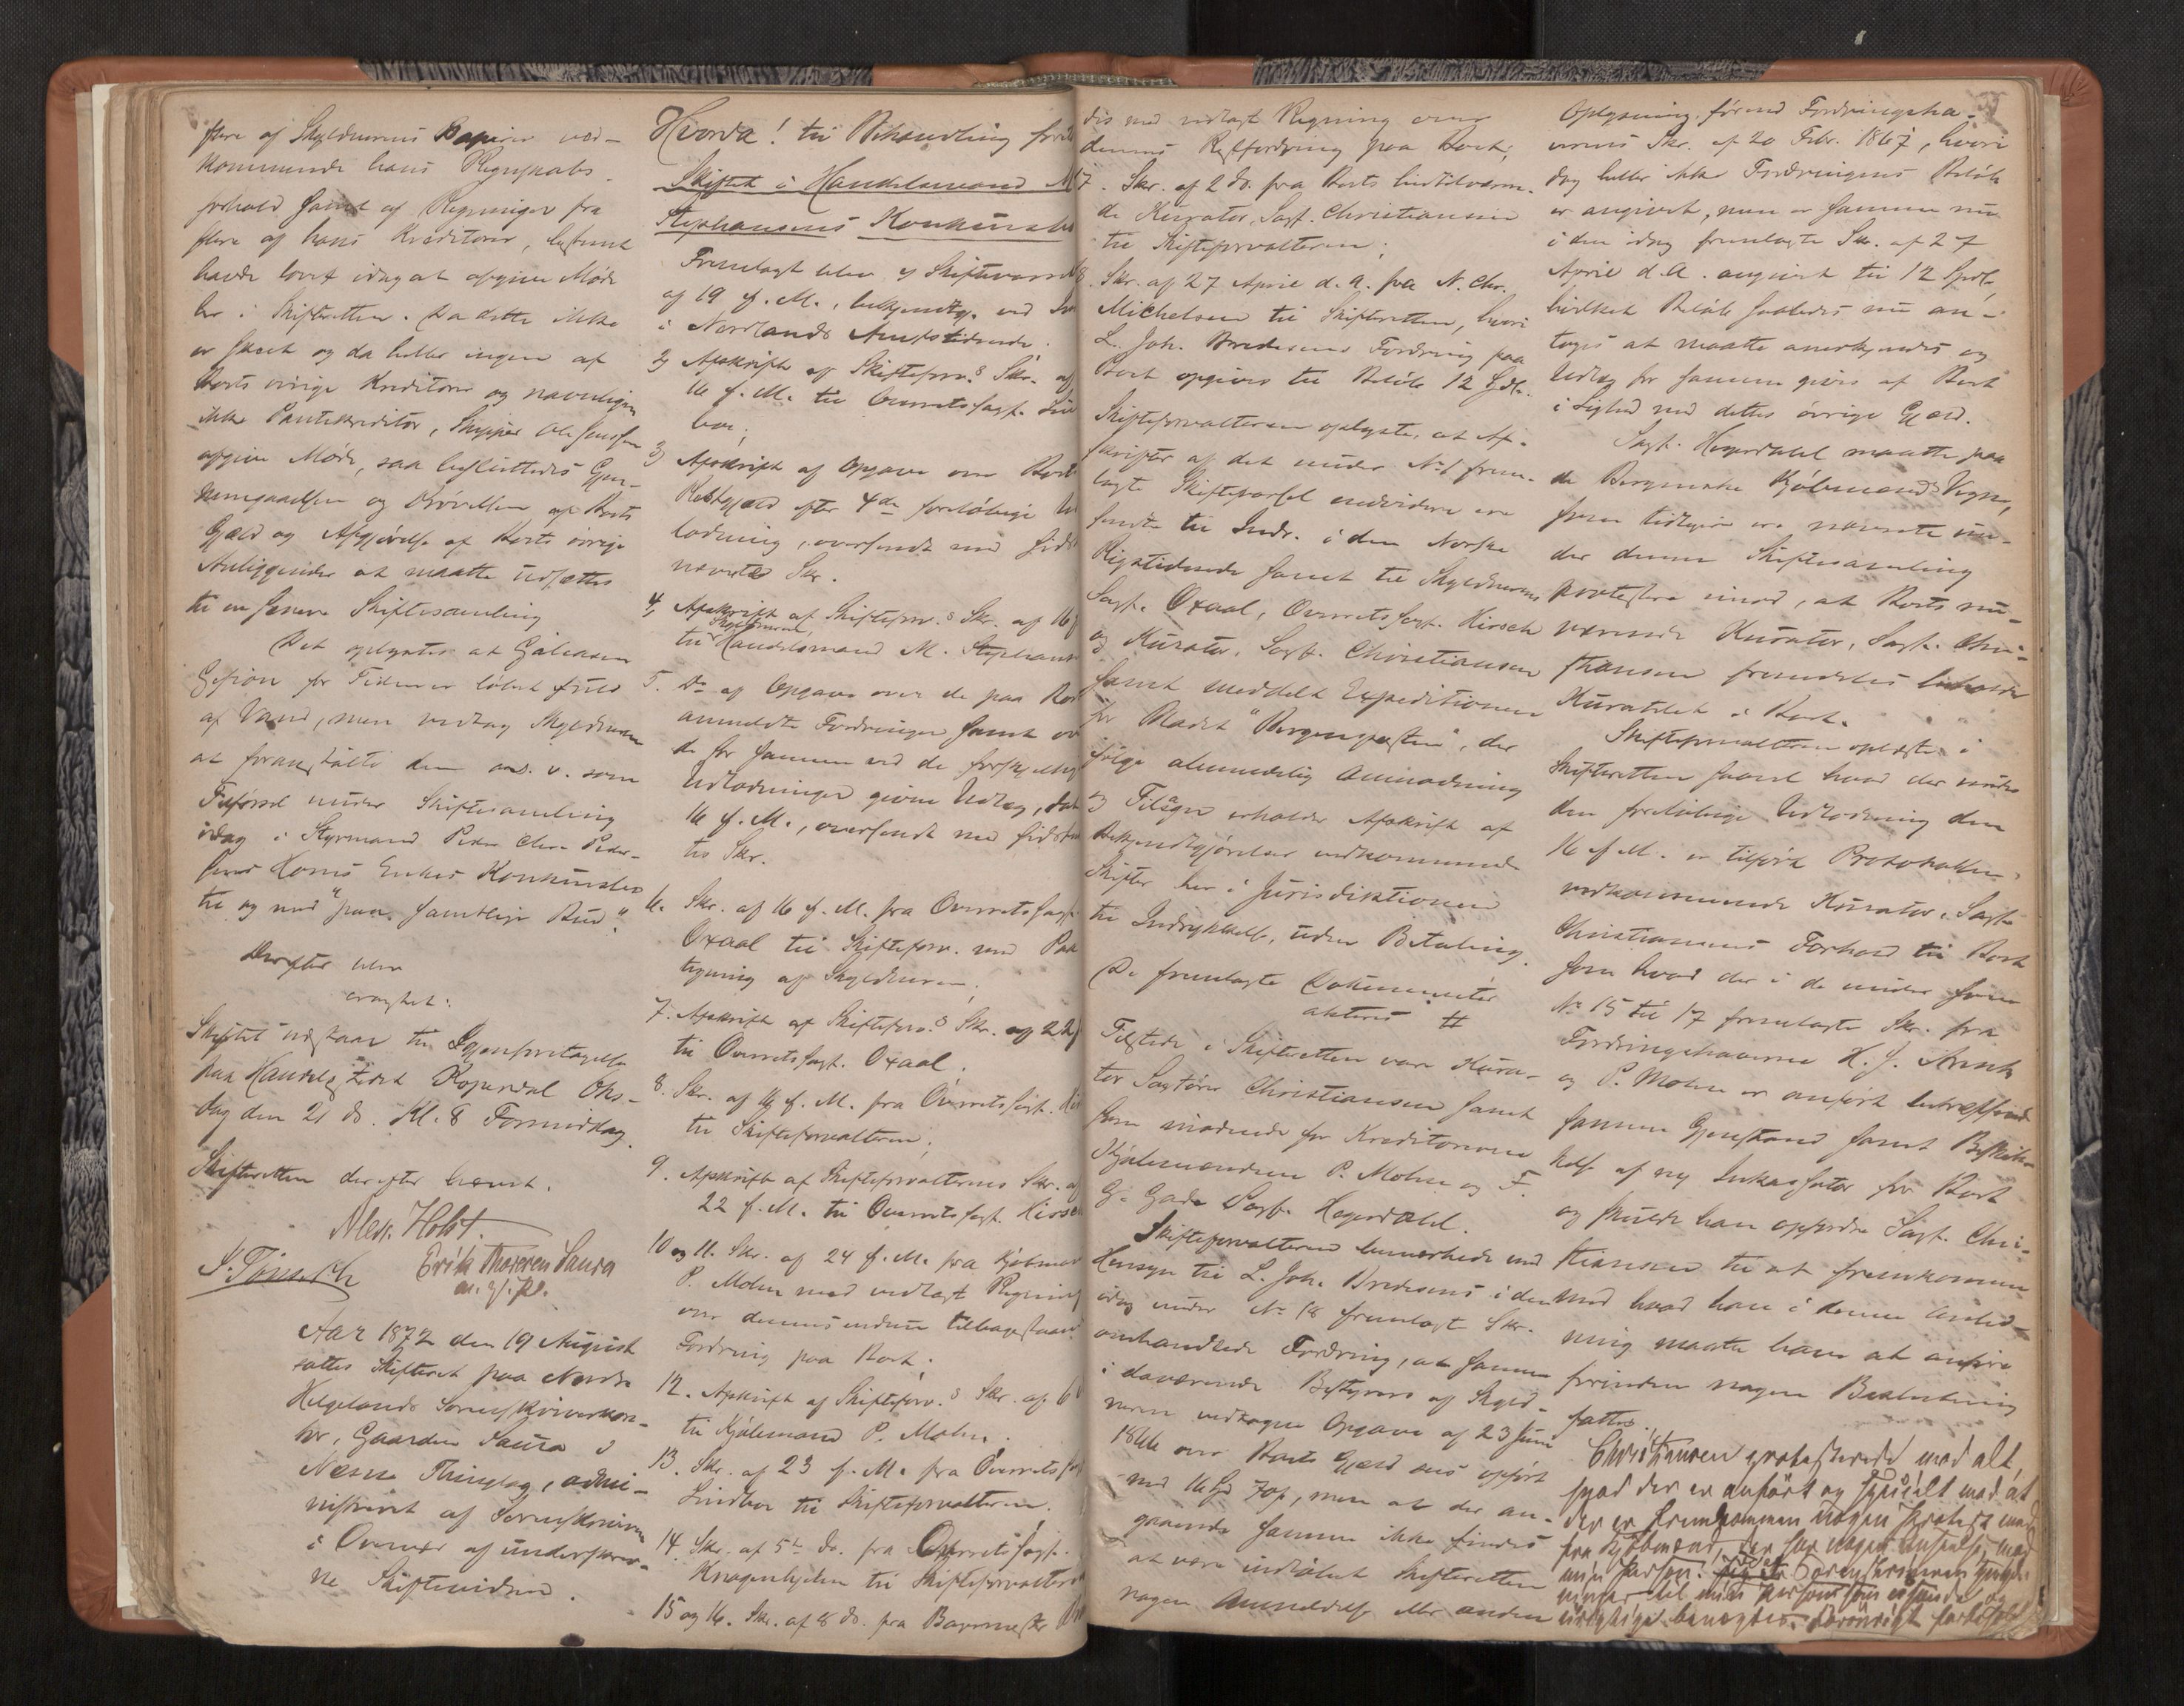 flere af Skyldnerens Papirer ved-
kommende hans Regnskabs-
forhold samt af Regninger fra
flere af hans Kreditorer,
havde lovet idag at afgive Møde
her i Skifteretten. Da dette ikke
er skeet og da heller ingen af
Boets øvrige Kreditorer og navnligen
ikke Pantekreditor, Skipper Ole Jensen
afgive Møde, saa besluttedes Gjen-
nemgaaelsen og Prøvelsen af Boets
Gjæld og Afgjørelse af Boets øvrige
Anliggender at maatte udsættes
til en senere Skiftesamling
Det oplystes at Galeasen
Gefion for Tiden er løbet fuld
af Vand, men vedtog Skyldneren
at foranstalte den o.s.v. som
Tilførsel under Skiftesamling
idag i Styrmand Peder Chr. Peder-
sens Enkes Konkursbo
til og med "paa samtlige Bud".
Derefter blev
eragtet:
Skiftet udstaar til Igjenforetagelse
paa Handelsstedet Kopardal Ons-
dag den 21 ds. Kl. 8 Formiddag.
Skifteretten derefter hævet.
Alex. Holst.
Erik Thoresen Saura
m. p. P.
Aar 1872 den 19 August
sattes Skifteret paa Nordre
Helgelands Sorenskriverkon-
tor, Gaarden Saura i
Nesne Thinglag, admi-
nistreret af Sorenskriveren
i Overvær af underskrev-
ne Skiftevidner.
Hvorda! til Behandling
Skiftet i Handelsmand M.
Stephansens Konkursbo
Fremlagt blev 1) Skiftevarsel
af 19 f. M., bekjendtgj. ved
i Nordlands Amtstidende.
2) Afskrift af Skifteforv.s Skr. af
16 f. M. til Overretssagf. Lind
boe;
3) Afskrift af Opgave over Boets
Restgjæld efter 4de foreløbige Ud
lodning, oversendt med sidst
nævnte Skr.
4, Afskrift af Skifteforv.s Skr. af 16 f
til Skyldneren, Handelsmand M. Stephans
5. Do af Opgave over de paa Bo
anmeldte Fordringer samt ov
de for samme ved de forskjellige
Udlodninger givne Udlæg, dat
16 f. M., oversendt med sidstnæv
te Skr.
6. Skr. af 16 f. M. fra Overretssagf.
Oxaal til Skifteforv. med Paa
tegning af Skyldneren;
7. Afskrift af Skifteforv.s Skr. af 22 f
til Overretssagf. Oxaal.
8. Skr. af 16 f. M. fra Overretssagf. Hir
til Skifteforvalteren;
9. Afskrift af Skifteforvalterens Skr. af
22 f. M. til Overretssagf. Hirsch
10 og 11. Skr. af 24 f. M. fra Kjøbmand
P. Mohn med vedlagt Regning
over dennes endnu tilbagestaaende
Fordring paa Boet;
12. Afskrift af Skifteforv.s Skr. af 6
til Kjøbmand P. Mohn.
13. Skr. af 23 f. M. fra Overretssagf
Lindboe til Skifteforvalteren.
14. Skr. af 5te ds. fra Overretssagf.
Knagenhjelm til Skifteforvalteren
15 og 16. Skr. af 8 ds. fra Bagermester
dis med vedlagt Regning over
dennes Restfordring paa Boet;
17. Skr. af 2 ds. fra Boets hidtilværen-
de Kurator, Sagf. Christiansen
til Skifteforvalteren;
18. Skr. af 27 April d. A. fra N. Chr.
Michelsen til Skifteretten, hvori
L. Joh. Bredesens Fordring paa
Boet opgives til Beløb 12 Spdl.
Skifteforvalteren oplyste, at Af-
skrifter af det under No 1 frem-
lagte Skiftevarsel endvidere ere
sendte til Indr. i den Norske
Rigstidende samt til Skyldneren,
Sagf. Oxaal, Overretssagf. Hirsch
og Kurator, Sagf. Christiansen
samt meddelt Expeditionen
for Bladet "Bergensposten", der
ifølge almindelig Anmodning
og Tilsagn erholder Afskrift af
Bekjendtgjørelser vedkommende
Skifter her i Jurisdiktionen
til Indrykkelse, uden Betaling.
De fremlagte Dokumenter
akteres #
Tilstede i Skifteretten vare Kura-
tor Sagfører Christiansen samt
som mødende for Kreditorerne
Kjøbmændene P. Mohn og F.
G. Gade Sagf. Hegerdahl.
Skifteforvalteren bemærkede med
Hensyn til L. Joh. Bredesens i den
idag under No 18 fremlagte Skr.
omhandlede Fordring, at samme
i daværende Bestyrers og Skyld-
neren vedtagne Opgave af 23 Juni
1866 over Boets Gjæld sees opført
med 16 Spd 70 s, men at der an-
gaaende samme ikke findes
at være indløbet Skifteretten
nogen Anmeldelse eller anden
Oplysning, førend Fordringsha-
verens Skr. af 20 Febr. 1867, hvori
dog heller ikke Fordringens Beløb
er angivet, men er samme nu
i den idag fremlagte Skr. af 27
April d. A. angivet til 12 Spdl.,
hvilket Beløb saaledes nu an-
toges at maatte anerkjendes og
Udlæg for samme gives af Boet
i Lighed med dettes øvrige Gjæld.
Sagf. Hegerdahl maatte paa
de Bergenske Kjøbmænds Vegne,
som tidligere ere nævnte un-
der denne Skiftesamling
protestere imod, at Boets nu-
værende Kurator, Sagf. Chri-
stiansen fremdeles beholder
Kuratelet i Boet.
Skifteforvalteren oplæste i
Skifteretten saavel hvad der under
den foreløbige Udlodning den
16 f. M. er tilført Protokollen
vedkommende Kurator, Sagf.
Christiansens Forhold til Boet
som hvad der i de under
No 15 til 17 fremlagte Skr. fra
Fordringshaverne H. J.
og P. Mohn er anført betræffende
samme Gjenstand samt Beskik-
kelse af ny Inkassator for Boet
og skulde han opfordre Sagf. Chri-
stiansen til at fremkomme
med hvad han i denne Anled-
ning maatte have at anføre
forinden nogen Beslutning
fattes.
Christiansen protesterede mod alt,
hvad der er anført og specielt mod at
der er fremkommen nogen protest mod
fra Kjøbmænd, der har nogen
min person. Sorenskriverens
til min person som
urigtige benægtes.